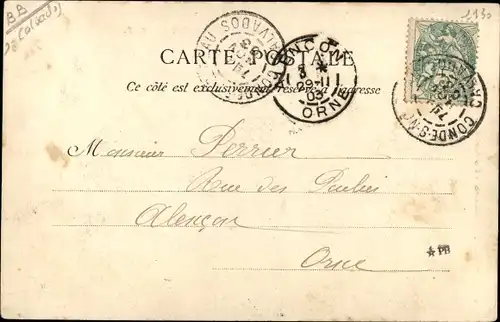 BB
Calvados
1130
CARTE POSTALE
Ce côté est exclusivement réservé à l'adresse
ALENÇON
3 *
29 -11
03
ORNE
CALVADOS
CONDÉ-S-N
Monsieur Perrier
Rue des
Alençon
Orne
★ PB